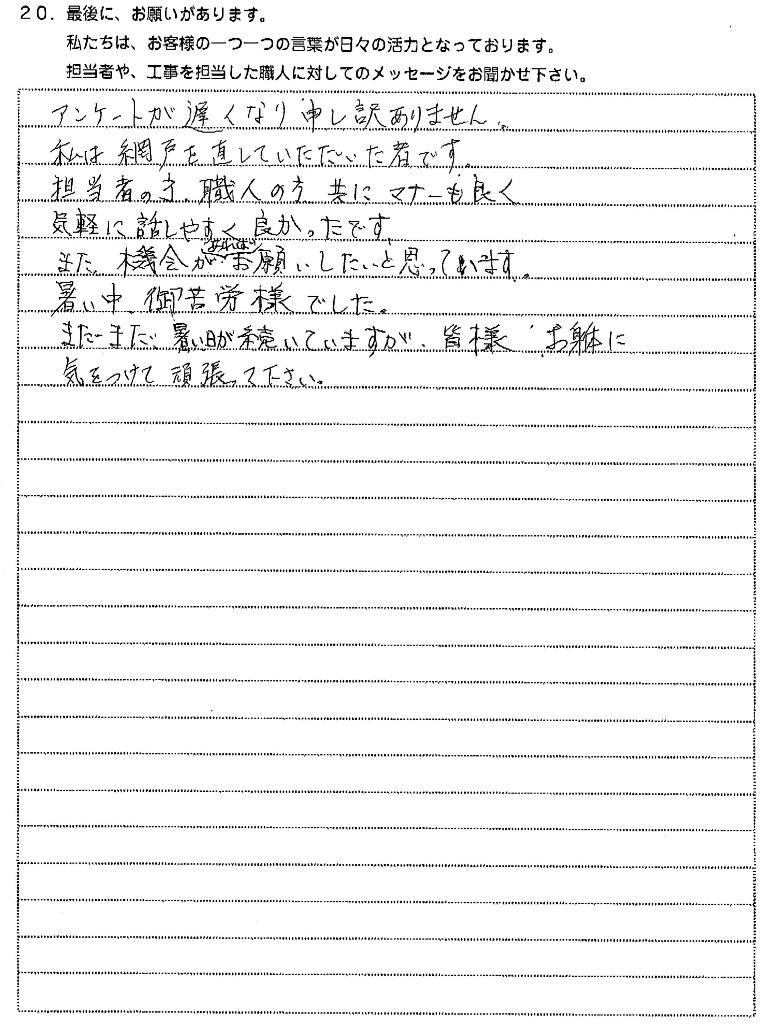 20．最後に、お願いがあります。
私たちは、お客様の一つ一つの言葉が日々の活力となっております。
担当者や、工事を担当した職人に対してのメッセージをお聞かせ下さい。
アンケートが遅くなり申し訳ありません。
私は網戸を直していただいた者です。
担当者の方、職人の方 共に マナーも良く
気軽に話しやすく良かったです。
また、機会があればお願いしたいと思っています。
暑い中、御苦労様でした。
まだまだ、暑い日が続いていますが、皆様 お躰に
気をつけて頑張って下さい。